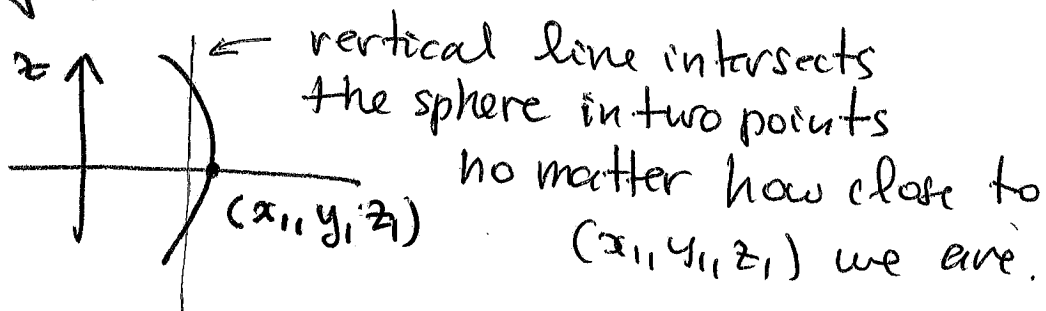 z
← vertical line intersects
the sphere in two points
no matter how close to
(x₁, y₁, z₁)
(x₁, y₁, z₁) we are.